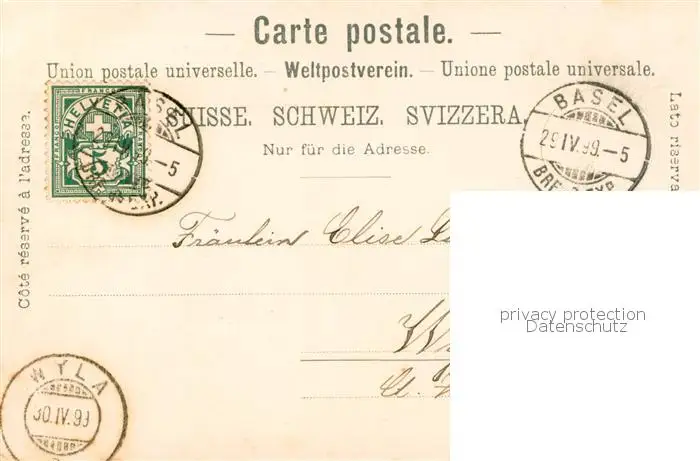 Carte postale.
Union postale universelle. — Weltpostverein. — Unione postale universale.
SUISSE. SCHWEIZ. SVIZZERA.
Nur für die Adresse.
Côté réservé à l'adresse.
Lato riserva
HELVETIA
FRANCO
5
BASEL
29 IV.99.-5
BASEL
-5
Fräulein Elise
privacy protection
Datenschutz
WYLA
30.IV.99